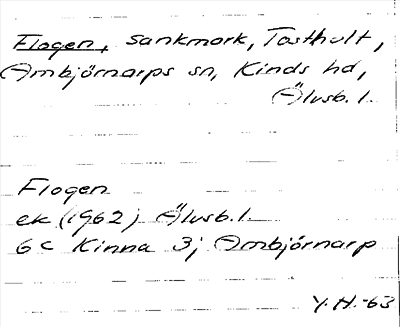 Flogen, sankmark, Tosthult,
Ambjörnarps sn, Kinds hd,
Älvsb. l.
Flogen
ek (1962) Älvsb. l.
6 c Kinna 3j Ambjörnarp
Y.H.-63